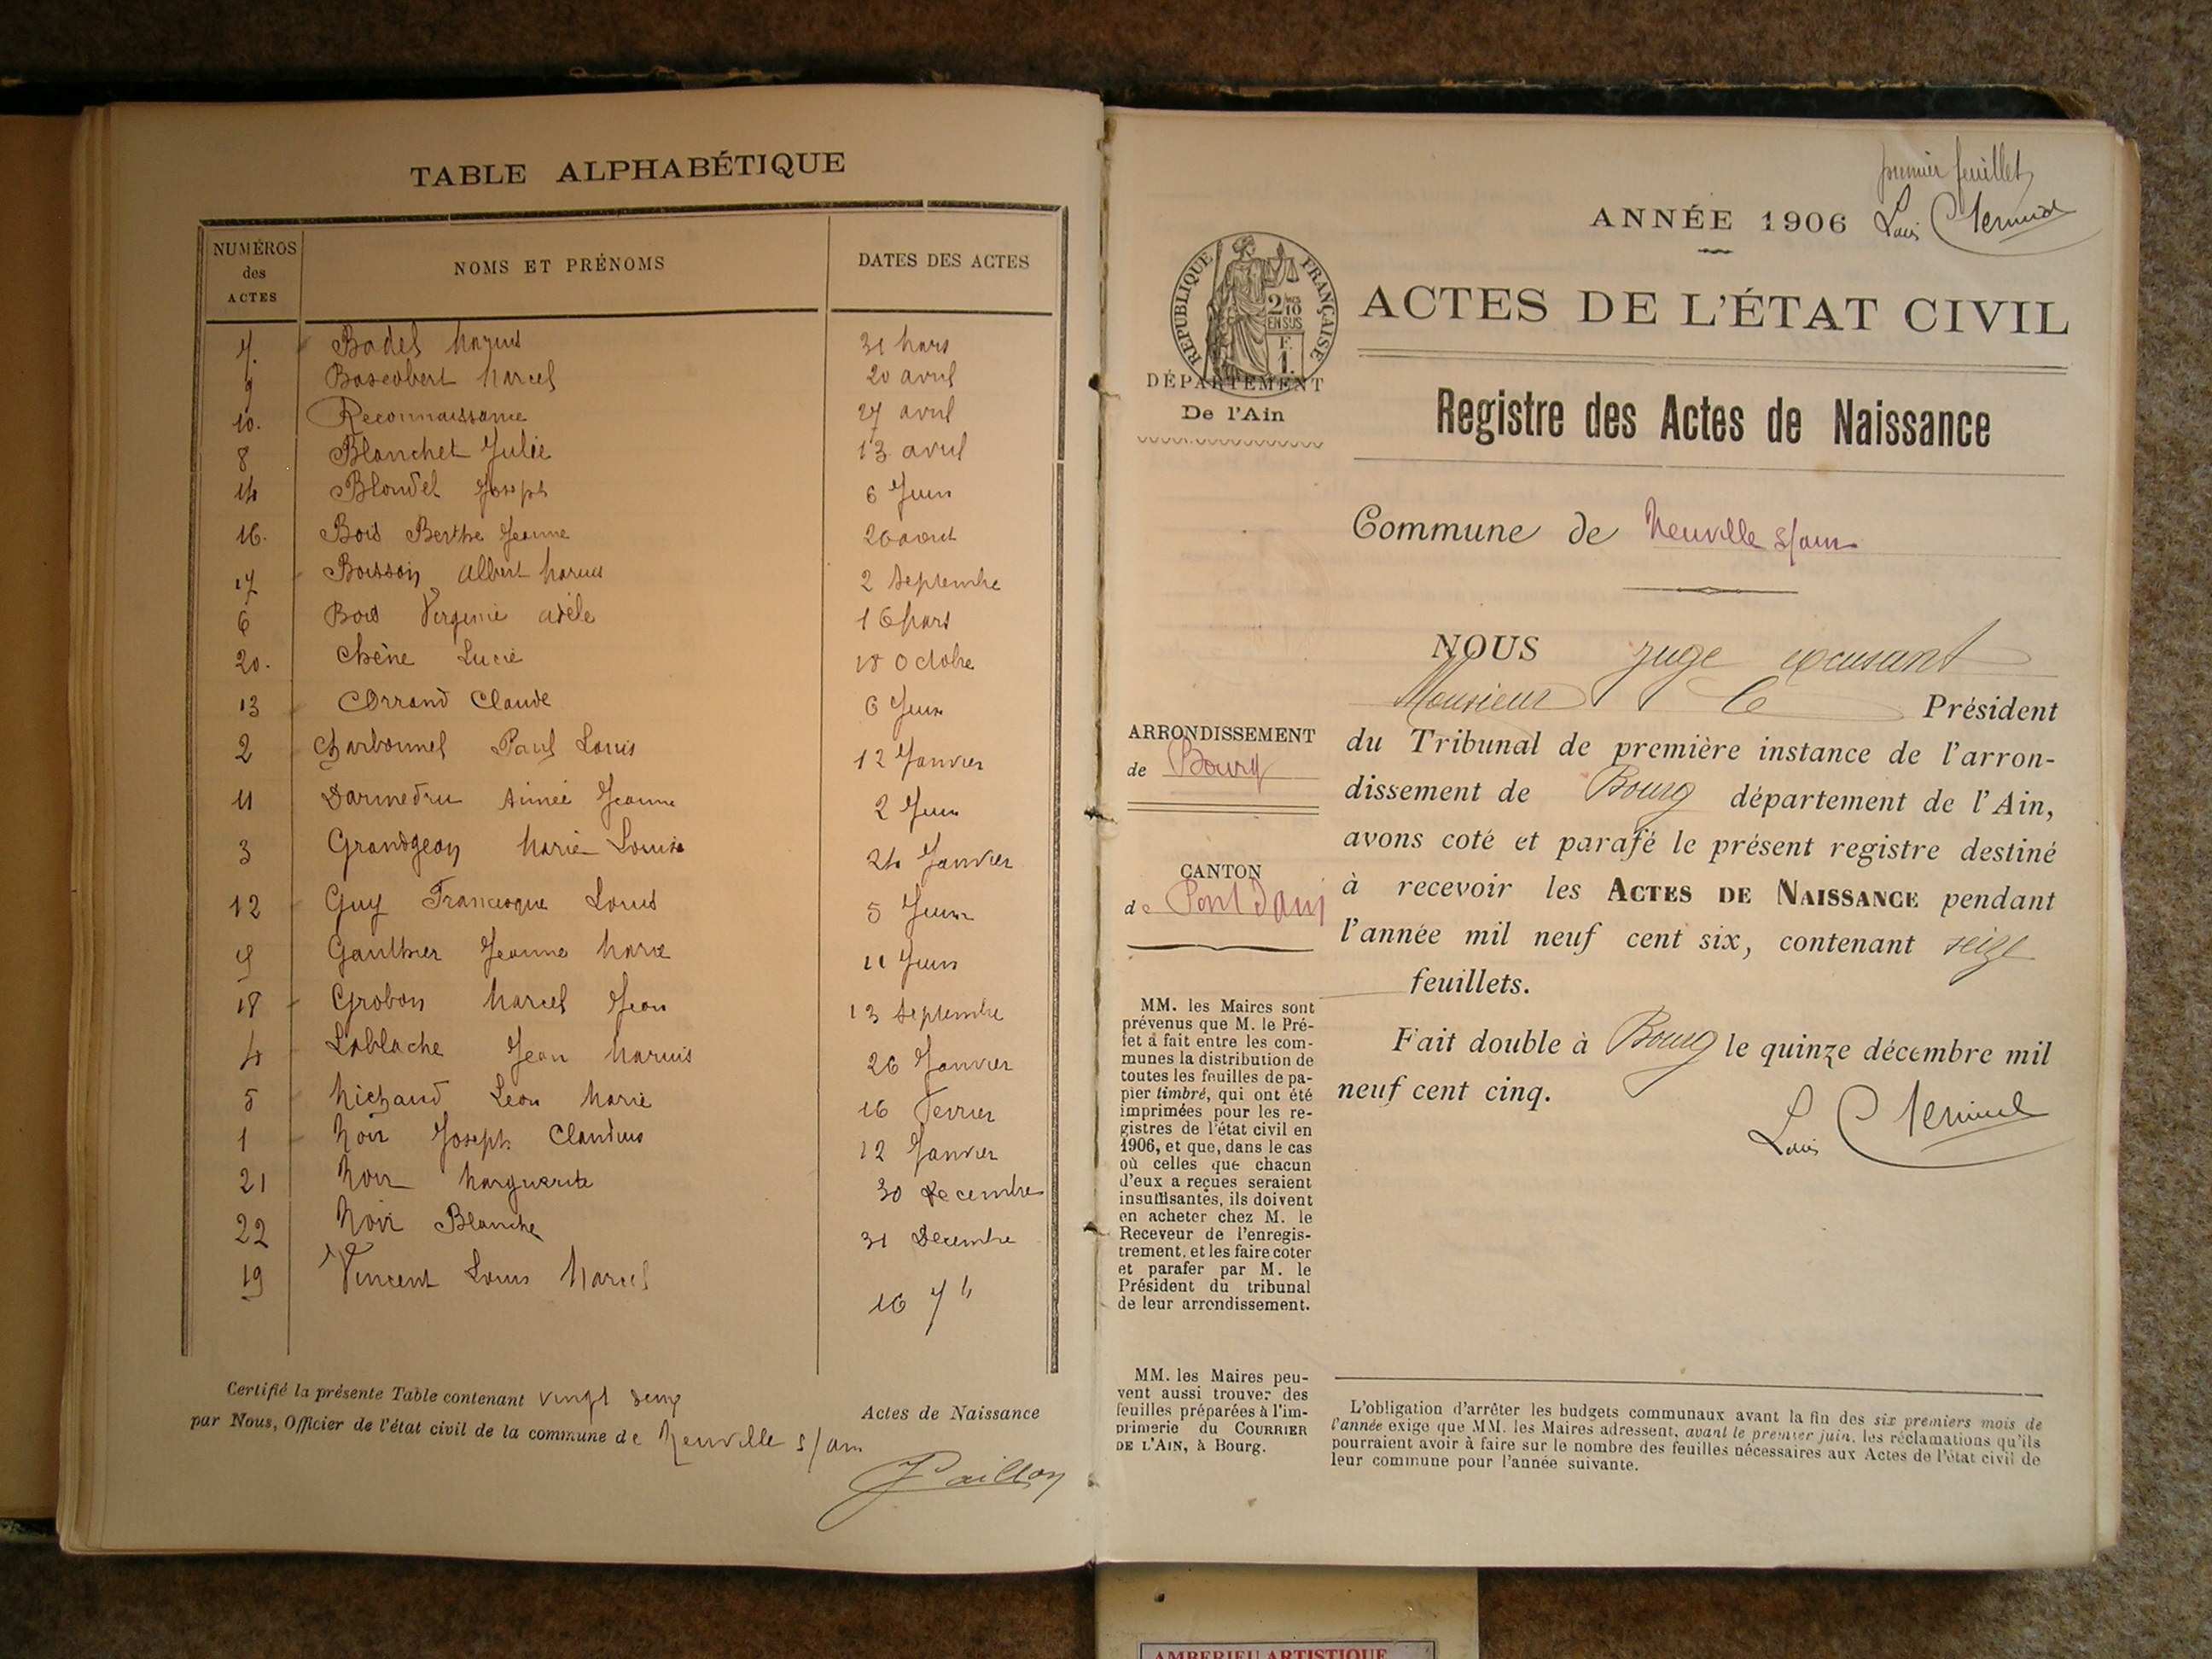 TABLE ALPHABÉTIQUE
NUMÉROS des ACTES
NOMS ET PRÉNOMS
DATES DES ACTES
7. Badel Marius 31 Mars
9 Boscobert Marcel 20 avril
10. Reconnaissance 27 avril
8 Blanchet Julie 13 avril
14 Blondel Joseph 6 Juin
16. Bois Berthe Jeanne 20 aout
17 Boisson Albert Marius 2 Septembre
6 Bois Virginie adèle 16 Mars
20. Chêne Lucie 18 Octobre
13 Claude 6 Juin
2 Charbonnel Paul Louis 12 Janvier
11 Darmedru Aimée Jeanne 2 Juin
3 Grandgeon Marie Louise 24 Janvier
12 Guy Francisque Louis 5 Juin
Gauthier Jeanne Marie 11 Juin
18 Grobon Marcel Jean 13 Septembre
4 Lablache Jean Marius 26 Janvier
5 Michaud Leon Marie 16 Fevrier
1 Noir Joseph Claudius 12 Janvier
21 Noir Marguerite 30 Decembre
22 Noir Blanche 31 Decembre
19 Vincent Louis Marcel 16 7b
Certifié la présente Table contenant vingt deux Actes de Naissance
par Nous, Officier de l'état civil de la commune de Neuville s/ain
premier feuillet
ANNÉE 1906 Louis
RÉPUBLIQUE FRANÇAISE
2/10
EN SUS
F.
1.
ACTES DE L'ÉTAT CIVIL
DÉPARTEMENT
De l'Ain
Registre des Actes de Naissance
Commune de Neuville s/ain
NOUS juge excusant
Monsieur le Président
du Tribunal de première instance de l'arron-
dissement de Bourg département de l'Ain,
avons coté et parafé le présent registre destiné
à recevoir les ACTES DE NAISSANCE pendant
l'année mil neuf cent six, contenant seize
feuillets.
Fait double à Bourg le quinze décembre mil
neuf cent cinq.
Louis
ARRONDISSEMENT
de Bourg
CANTON
de Pont d'ain
MM. les Maires sont
prévenus que M. le Pré-
fet a fait entre les com-
munes la distribution de
toutes les feuilles de pa-
pier timbré, qui ont été
imprimées pour les re-
gistres de l'état civil en
1906, et que, dans le cas
où celles que chacun
d'eux a reçues seraient
insuffisantes, ils doivent
en acheter chez M. le
Receveur de l'enregis-
trement, et les faire coter
et parafer par M. le
Président du tribunal
de leur arrondissement.
MM. les Maires peu-
vent aussi trouver des
feuilles préparées à l'im-
primerie du COURRIER
DE L'AIN, à Bourg.
L'obligation d'arrêter les budgets communaux avant la fin des six premiers mois de
l'année exige que MM. les Maires adressent, avant le premier juin, les réclamations qu'ils
pourraient avoir à faire sur le nombre des feuilles nécessaires aux Actes de l'état civil de
leur commune pour l'année suivante.
AMBERIEU ARTISTIQUE